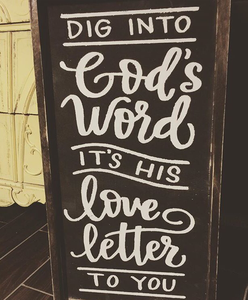 DIG INTO
God's
Word
IT'S HIS
love
letter
TO YOU